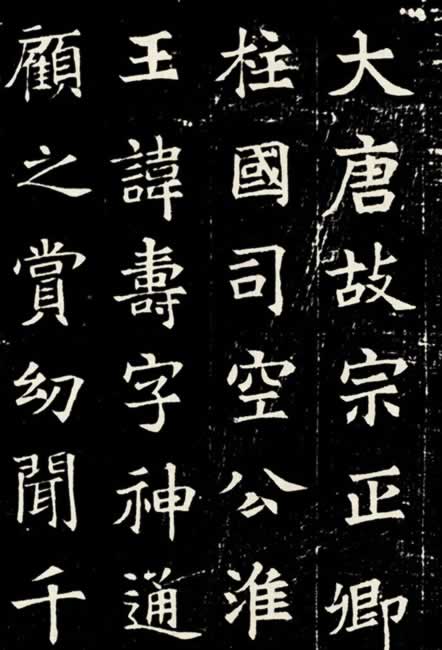 大唐故宗正卿
柱國司空公淮
王諱壽字神通
顧之賞幼聞千